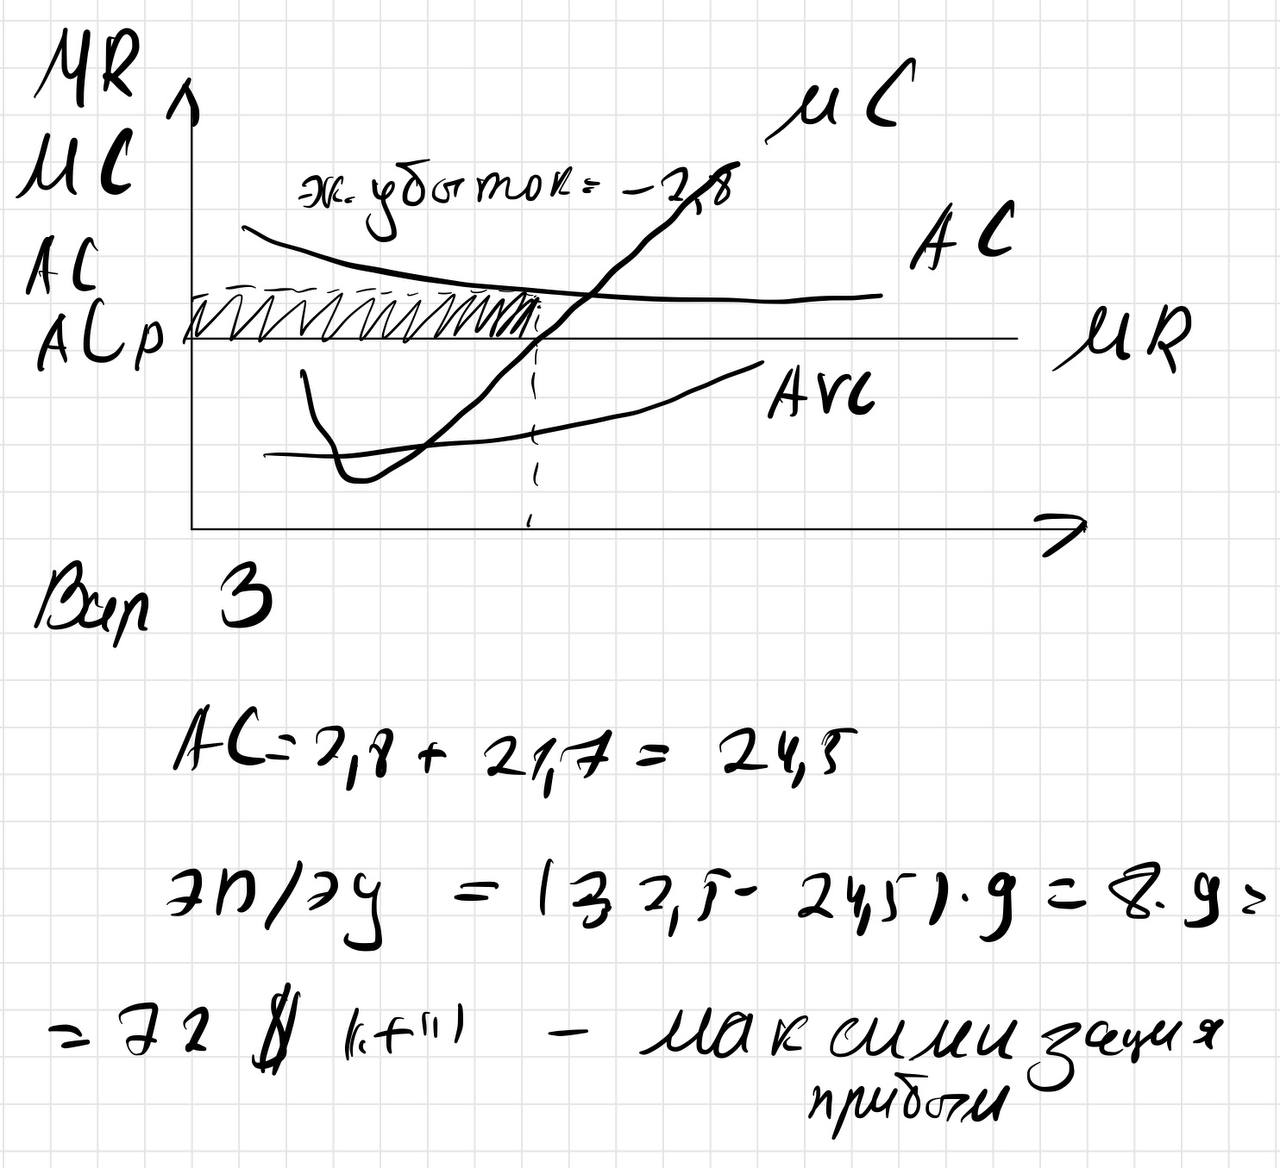 MR
MC
AC
ACp
эк. убыток = -2,8
MC
AC
MR
AVC
Вар 3
AC = 2,8 + 21,7 = 24,5
эп/эу = (32,5 - 24,5) · 9 = 8 · 9 =
= 72 $ (+) - максимизация
прибыли